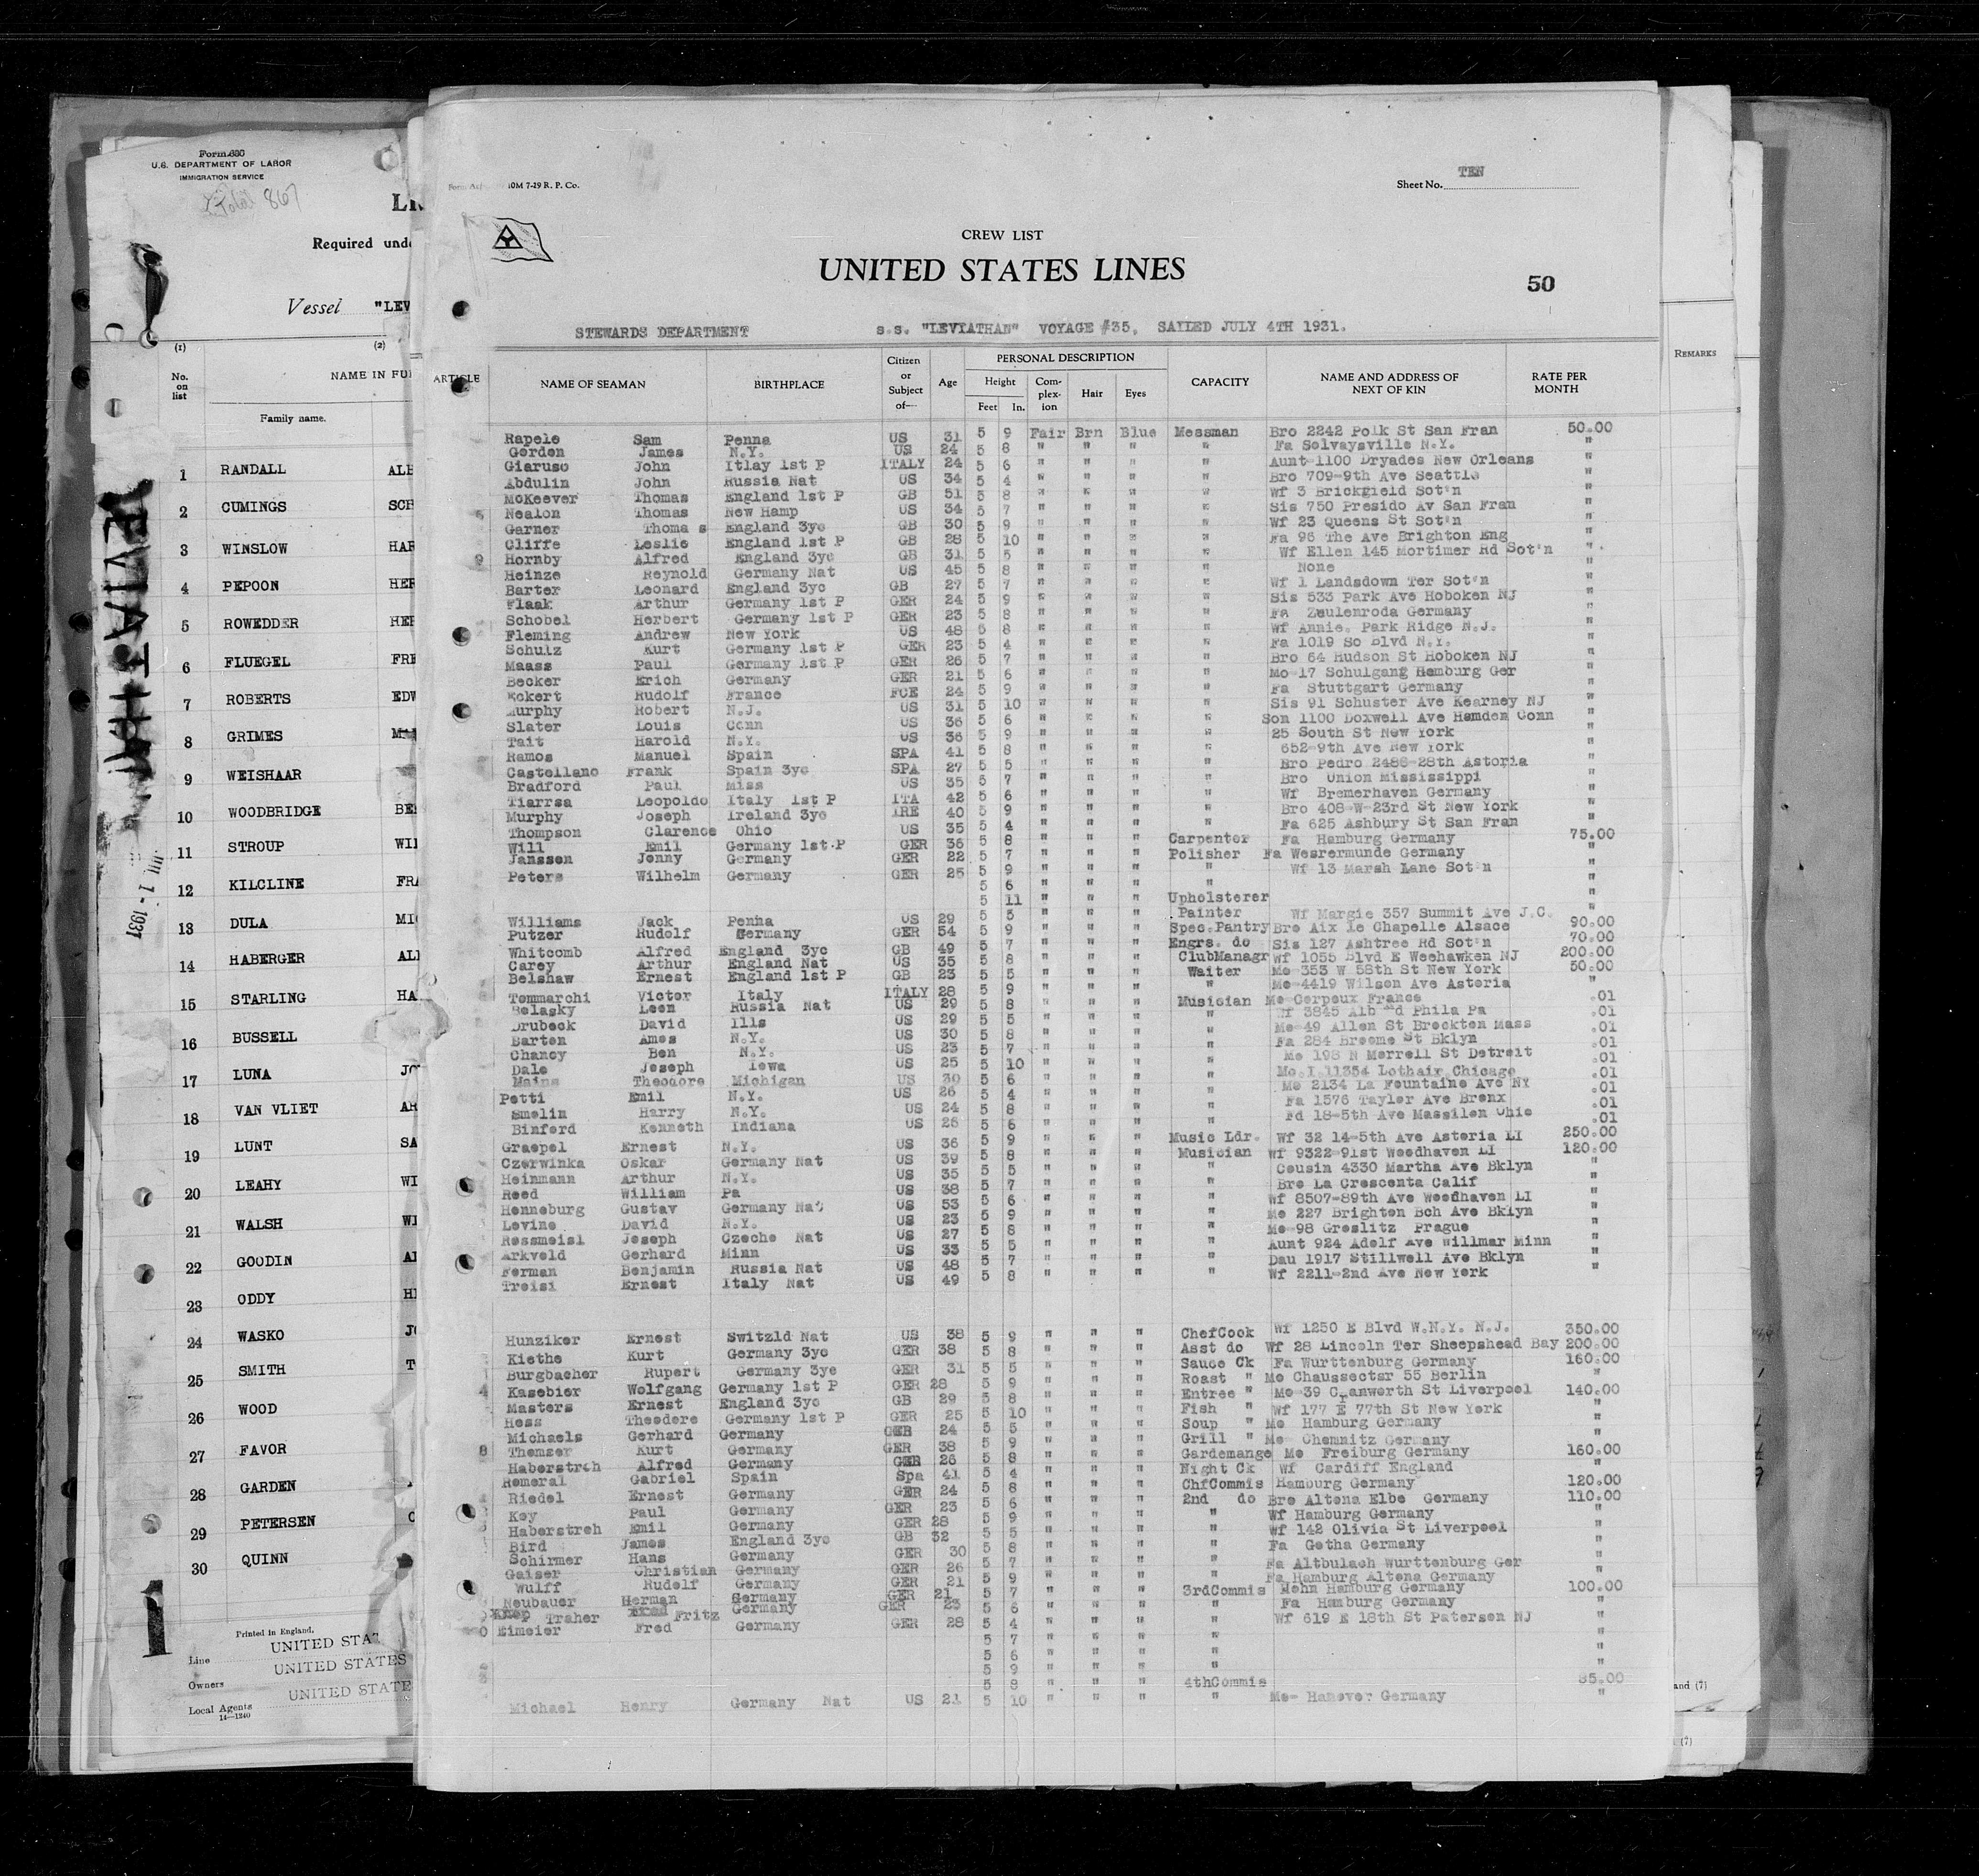 Form 680
U.S. DEPARTMENT OF LABOR
IMMIGRATION SERVICE
Total 867
Required unde
Vessel "LEV
(1) (2)
No. on list
NAME IN FUL
Family name.
1 RANDALL ALE
2 CUMINGS SCH
3 WINSLOW HAR
4 PEPOON HER
5 ROWEDDER HER
6 FLUEGEL FRE
7 ROBERTS EDW
8 GRIMES
9 WEISHAAR
10 WOODBRIDGE BEN
11 STROUP WIL
12 KILCLINE FRA
13 DULA MIC
14 HABERGER ALE
15 STARLING HA
16 BUSSELL
17 LUNA JO
18 VAN VLIET AR
19 LUNT SA
20 LEAHY WI
21 WALSH WI
22 GOODIN AL
23 ODDY HE
24 WASKO JO
25 SMITH T
26 WOOD
27 FAVOR
28 GARDEN
29 PETERSEN
30 QUINN
LEVIATHAN
1
Printed in England.
Line UNITED STAT
Owners UNITED STATES
Local Agents UNITED STATE
14—1240
10M 7-29 R. P. Co.
Sheet No. TEN
CREW LIST
UNITED STATES LINES
50
STEWARDS DEPARTMENT s.s. "LEVIATHAN" VOYAGE #35, SAILED JULY 4TH 1931.
ARTICLE NAME OF SEAMAN BIRTHPLACE Citizen or Subject of— Age PERSONAL DESCRIPTION Height Feet In. Complexion Hair Eyes CAPACITY NAME AND ADDRESS OF NEXT OF KIN RATE PER MONTH
REMARKS
Rapele Sam Penna US 31 5 9 Fair Brn Blue Messman Bro 2242 Polk St San Fran 50.00
Gorden James N.Y. US 24 5 8 " " " " Fa Solvaysville N.Y. "
Giaruso John Itlay 1st P ITALY 24 5 6 " " " " Aunt-1100 Dryades New Orleans "
Abdulin John Russia Nat US 34 5 4 " " " " Bro 709-9th Ave Seattle "
McKeever Thomas England 1st P GB 51 5 8 " " " " Wf 3 Brickgield Sot'n "
Nealon Thomas New Hamp US 34 5 7 " " " " Sis 750 Presido Av San Fran "
Garner Thoma s England 3yc GB 30 5 9 " " " " Wf 23 Queens St Sot'n "
Cliffe Leslie England 1st P GB 28 5 10 " " " " Fa 96 The Ave Brighton Eng "
9 Hornby Alfred England 3yc GB 31 5 5 " " " " Wf Ellen 145 Mortimer Rd Sot'n "
Heinze Reynold Germany Nat US 45 5 8 " " " " None "
Barter Leonard England 3yc GB 27 5 7 " " " " Wf 1 Landsdown Ter Sot'n "
Flaak Arthur Germany 1st P GER 24 5 9 " " " " Sis 533 Park Ave Hoboken NJ "
Schobel Herbert Germany 1st P GER 23 5 8 " " " " Fa Zeulenroda Germany "
Fleming Andrew New York US 48 5 8 " " " " Wf Annie. Park Ridge N.J. "
Schulz Kurt Germany 1st P GER 23 5 4 " " " " Fa 1019 So Blvd N.Y. "
Maass Paul Germany 1st P GER 26 5 7 " " " " Bro 64 Hudson St Hoboken NJ "
Becker Erich Germany GER 21 5 6 " " " " Mo-17 Schulgang Hamburg Ger "
Eckert Rudolf France FCE 24 5 9 " " " " Fa Stuttgart Germany "
Murphy Robert N.J. US 31 5 10 " " " " Sis 91 Schuster Ave Kearney NJ "
Slater Louis Conn US 36 5 6 " " " " Son 1100 Doxwell Ave Hamden Conn "
Tait Harold N.Y. US 36 5 9 " " " " 25 South St New York "
Ramos Manuel Spain SPA 41 5 8 " " " " 652-9th Ave New York "
Castellano Frank Spain 3yc SPA 27 5 5 " " " " Bro Pedro 2486-28th Astoria "
Bradford Paul Miss US 35 5 7 " " " " Bro Union Mississippi "
Tiarrsa Leopoldo Italy 1st P ITA 42 5 6 " " " " Wf Bremerhaven Germany "
Murphy Joseph Ireland 3yc IRE 40 5 9 " " " " Bro 408-W-23rd St New York "
Thompson Clarence Ohio US 35 5 4 " " " " Fa 625 Ashbury St San Fran "
Will Emil Germany 1st P GER 36 5 8 " " " Carpenter Fa Hamburg Germany 75.00
Janssen Jonny Germany GER 22 5 7 " " " Polisher Fa Wesrermunde Germany "
Peters Wilhelm Germany GER 25 5 9 " " " " Wf 13 Marsh Lane Sot'n "
5 6 " " " " "
5 11 " " " Upholsterer "
Williams Jack Penna US 29 5 5 " " " Painter Wf Margie 357 Summit Ave J.C. "
Putzer Rudolf Germany GER 54 5 9 " " " Spec.Pantry Bro Aix le Chapelle Alsace 90.00
Whitcomb Alfred England 3yc GB 49 5 7 " " " Engrs. do Sis 127 Ashtree Rd Sot'n 70.00
Carey Arthur England Nat US 35 5 8 " " " ClubManagr Wf 1055 Blvd E Weehawken NJ 200.00
Belshaw Ernest England 1st P GB 23 5 5 " " " Waiter Mo-353 W 58th St New York 50.00
Tommarchi Victor Italy ITALY 28 5 9 " " " " Mo-4419 Wilson Ave Astoria "
Belasky Leon Russia Nat US 29 5 8 " " " Musician Mo Cerpeux France .01
Drubeck David Ills US 29 5 5 " " " " Wf 3845 Alb d Phila Pa .01
Barten Amos N.Y. US 30 5 8 " " " " Mo-49 Allen St Brockton Mass .01
Chancy Ben N.Y. US 23 5 7 " " " " Fa 284 Broome St Bklyn .01
Dale Joseph Iowa US 25 5 10 " " " " Mo 198 N Morrell St Detroit .01
Mains Theodore Michigan US 30 5 6 " " " " Mo.I.11354 Lothair Chicago .01
Petti Emil N.Y. US 26 5 4 " " " " Mo 2134 La Fountaine Ave NY .01
Smolin Harry N.Y. US 24 5 8 " " " " Fa 1576 Taylor Ave Bronx .01
Binford Kenneth Indiana US 25 5 6 " " " " Fd 18-5th Ave Massilon Ohio .01
Graepel Ernest N.Y. US 36 5 9 " " " Music Ldr. Wf 32 14-5th Ave Astoria LI 250.00
Czerwinka Oskar Germany Nat US 39 5 8 " " " Musician Wf 9322-91st Woodhaven LI 120.00
Heinmann Arthur N.Y. US 35 5 5 " " " " Cousin 4330 Martha Ave Bklyn "
Reed William Pa US 38 5 7 " " " " Bro La Crescenta Calif "
Henneburg Gustav Germany Nat US 53 5 6 " " " " Wf 8507-89th Ave Woodhaven LI "
Levine David N.Y. US 23 5 9 " " " " Mo 227 Brighton Bch Ave Bklyn "
Rossmeisl Joseph Czecho Nat US 27 5 8 " " " " Mo-98 Groslitz Prague "
Arkveld Gerhard Minn US 33 5 5 " " " " Aunt 924 Adolf Ave Willmar Minn "
Ferman Benjamin Russia Nat US 48 5 7 " " " " Dau 1917 Stillwell Ave Bklyn "
Treisi Ernest Italy Nat US 49 5 8 " " " " Wf 2211-2nd Ave New York "
Hunziker Ernest Switzld Nat US 38 5 9 " " " ChefCook Wf 1250 E Blvd W.N.Y. N.J. 350.00
Kiethe Kurt Germany 3yc GER 38 5 8 " " " Asst do Wf 28 Lincoln Ter Sheepshead Bay 200.00
Burgbacher Rupert Germany 3ye GER 31 5 5 " " " Sauce Ck Fa Wurttenburg Germany 160.00
4 Kasebier Wolfgang Germany 1st P GER 28 5 9 " " " Roast " Mo Chaussectsr 55 Berlin "
Masters Ernest England 3yc GB 29 5 8 " " " Entree " Mo-39 Cranworth St Liverpool 140.00
Hess Theodore Germany 1st P GER 25 5 10 " " " Fish " Wf 177 E 77th St New York "
Michaels Gerhard Germany GER 24 5 5 " " " Soup " Mo Hamburg Germany "
8 Themzer Kurt Germany GER 38 5 9 " " " Grill " Mo Chemnitz Germany "
Haberstroh Alfred Germany GER 26 5 8 " " " Gardemange Mo Freiburg Germany 160.00
Romeral Gabriel Spain Spa 41 5 4 " " " Night Ck Wf Cardiff England "
Riedel Ernest Germany GER 24 5 8 " " " ChfCommis Hamburg Germany 120.00
Key Paul Germany GER 23 5 6 " " " 2nd do Bro Altona Elbe Germany 110.00
Haberstroh Emil Germany GER 28 5 9 " " " " Wf Hamburg Germany "
Bird James England 3yc GB 32 5 5 " " " " Wf 142 Olivia St Liverpool "
Schirmer Hans Germany GER 30 5 8 " " " " Fa Gotha Germany "
Gaiser Christian Germany GER 26 5 7 " " " " Fa Altbulach Wurttenburg Ger "
Wulff Rudolf Germany GER 21 5 9 " " " " Fa Hamburg Altona Germany "
Neubauer Herman Germany GER 21 5 7 " " " 3rdCommis Mohn Hamburg Germany 100.00
Traher Fritz Germany GER 23 5 6 " " " " Fa Hamburg Germany "
0 Eimeier Fred Germany GER 28 5 4 " " " " Wf 619 E 18th St Paterson NJ "
5 7 " " " " "
5 6 " " " " "
5 9 " " " " "
5 8 " " " 4thCommis 85.00
Michael Henry Germany Nat US 21 5 10 " " " " Mo- Hanover Germany "
and (7)
(7)